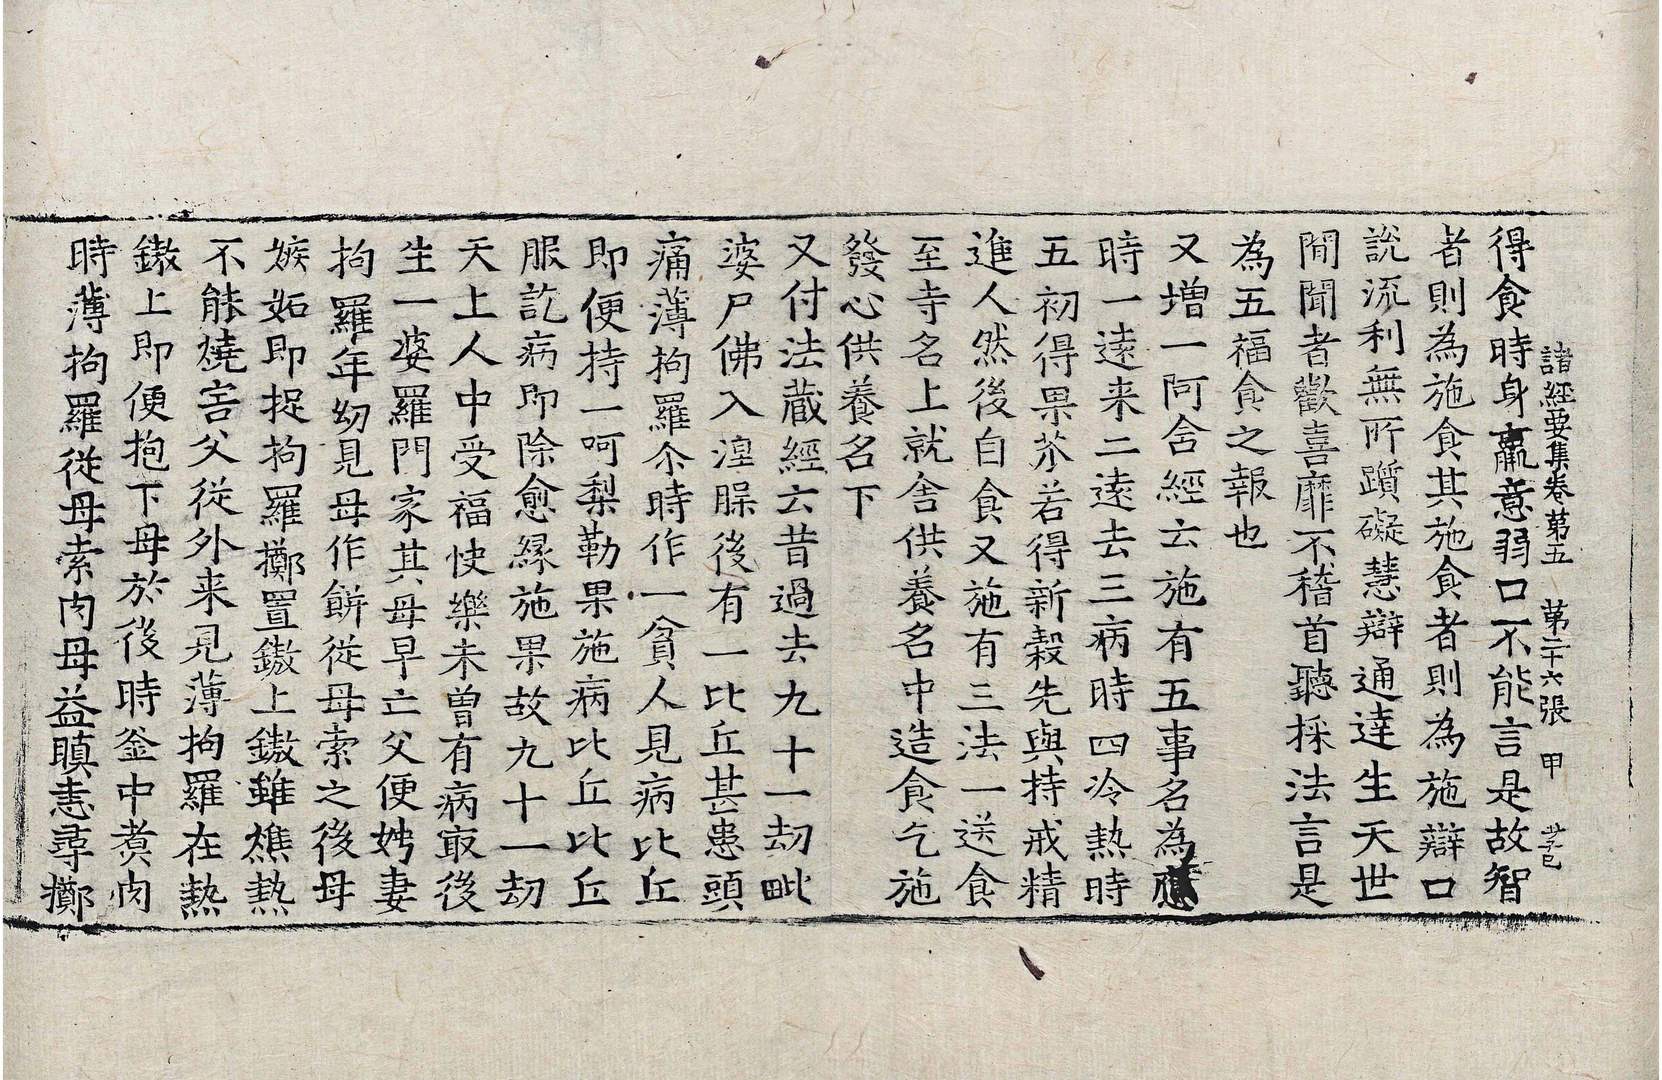 得食時身羸意弱口不能言是故智
諸經要集卷第五 第二十六張 甲
者則為施食其施食者則為施辯口
說流利無所躓礙慧辯通達生天世
閒聞者歡喜靡不稽首聽採法言是
為五福食之報也
又增一阿含經云施有五事名為應
時一遠来二遠去三病時四冷熱時
五初得果苽若得新穀先與持戒精
進人然後自食又施有三法一送食
至寺名上就舍供養名中造食乞施
發心供養名下
又付法蔵經云昔過去九十一劫毗
婆尸佛入湼槃後有一比丘甚患頭
痛薄拘羅尒時作一貧人見病比丘
即便持一呵梨勒果施病比丘比丘
服訖病即除愈縁施果故九十一劫
天上人中受福快樂未曽有病冣後
生一婆羅門家其母早亡父便娉妻
拘羅年幼見母作餅従母索之後母
嫉妬即捉拘羅擲置鏊上鏊雖燋熱
不能燒害父従外来見薄拘羅在熱
鏊上即便抱下母於後時釜中煑肉
時薄拘羅従母索肉母益瞋恚尋擲